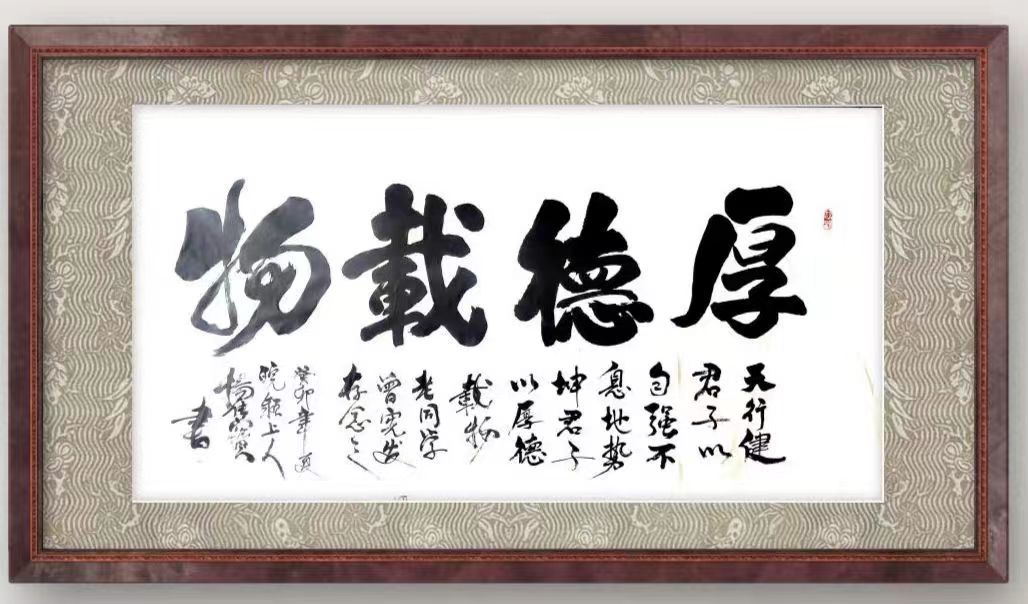 厚德載物
天行健
君子以
自强不
息地势
坤君子
以厚德
載物
老同学
曾宪发
存念之
癸卯年夏
皖籍上人
楊傳寶
書